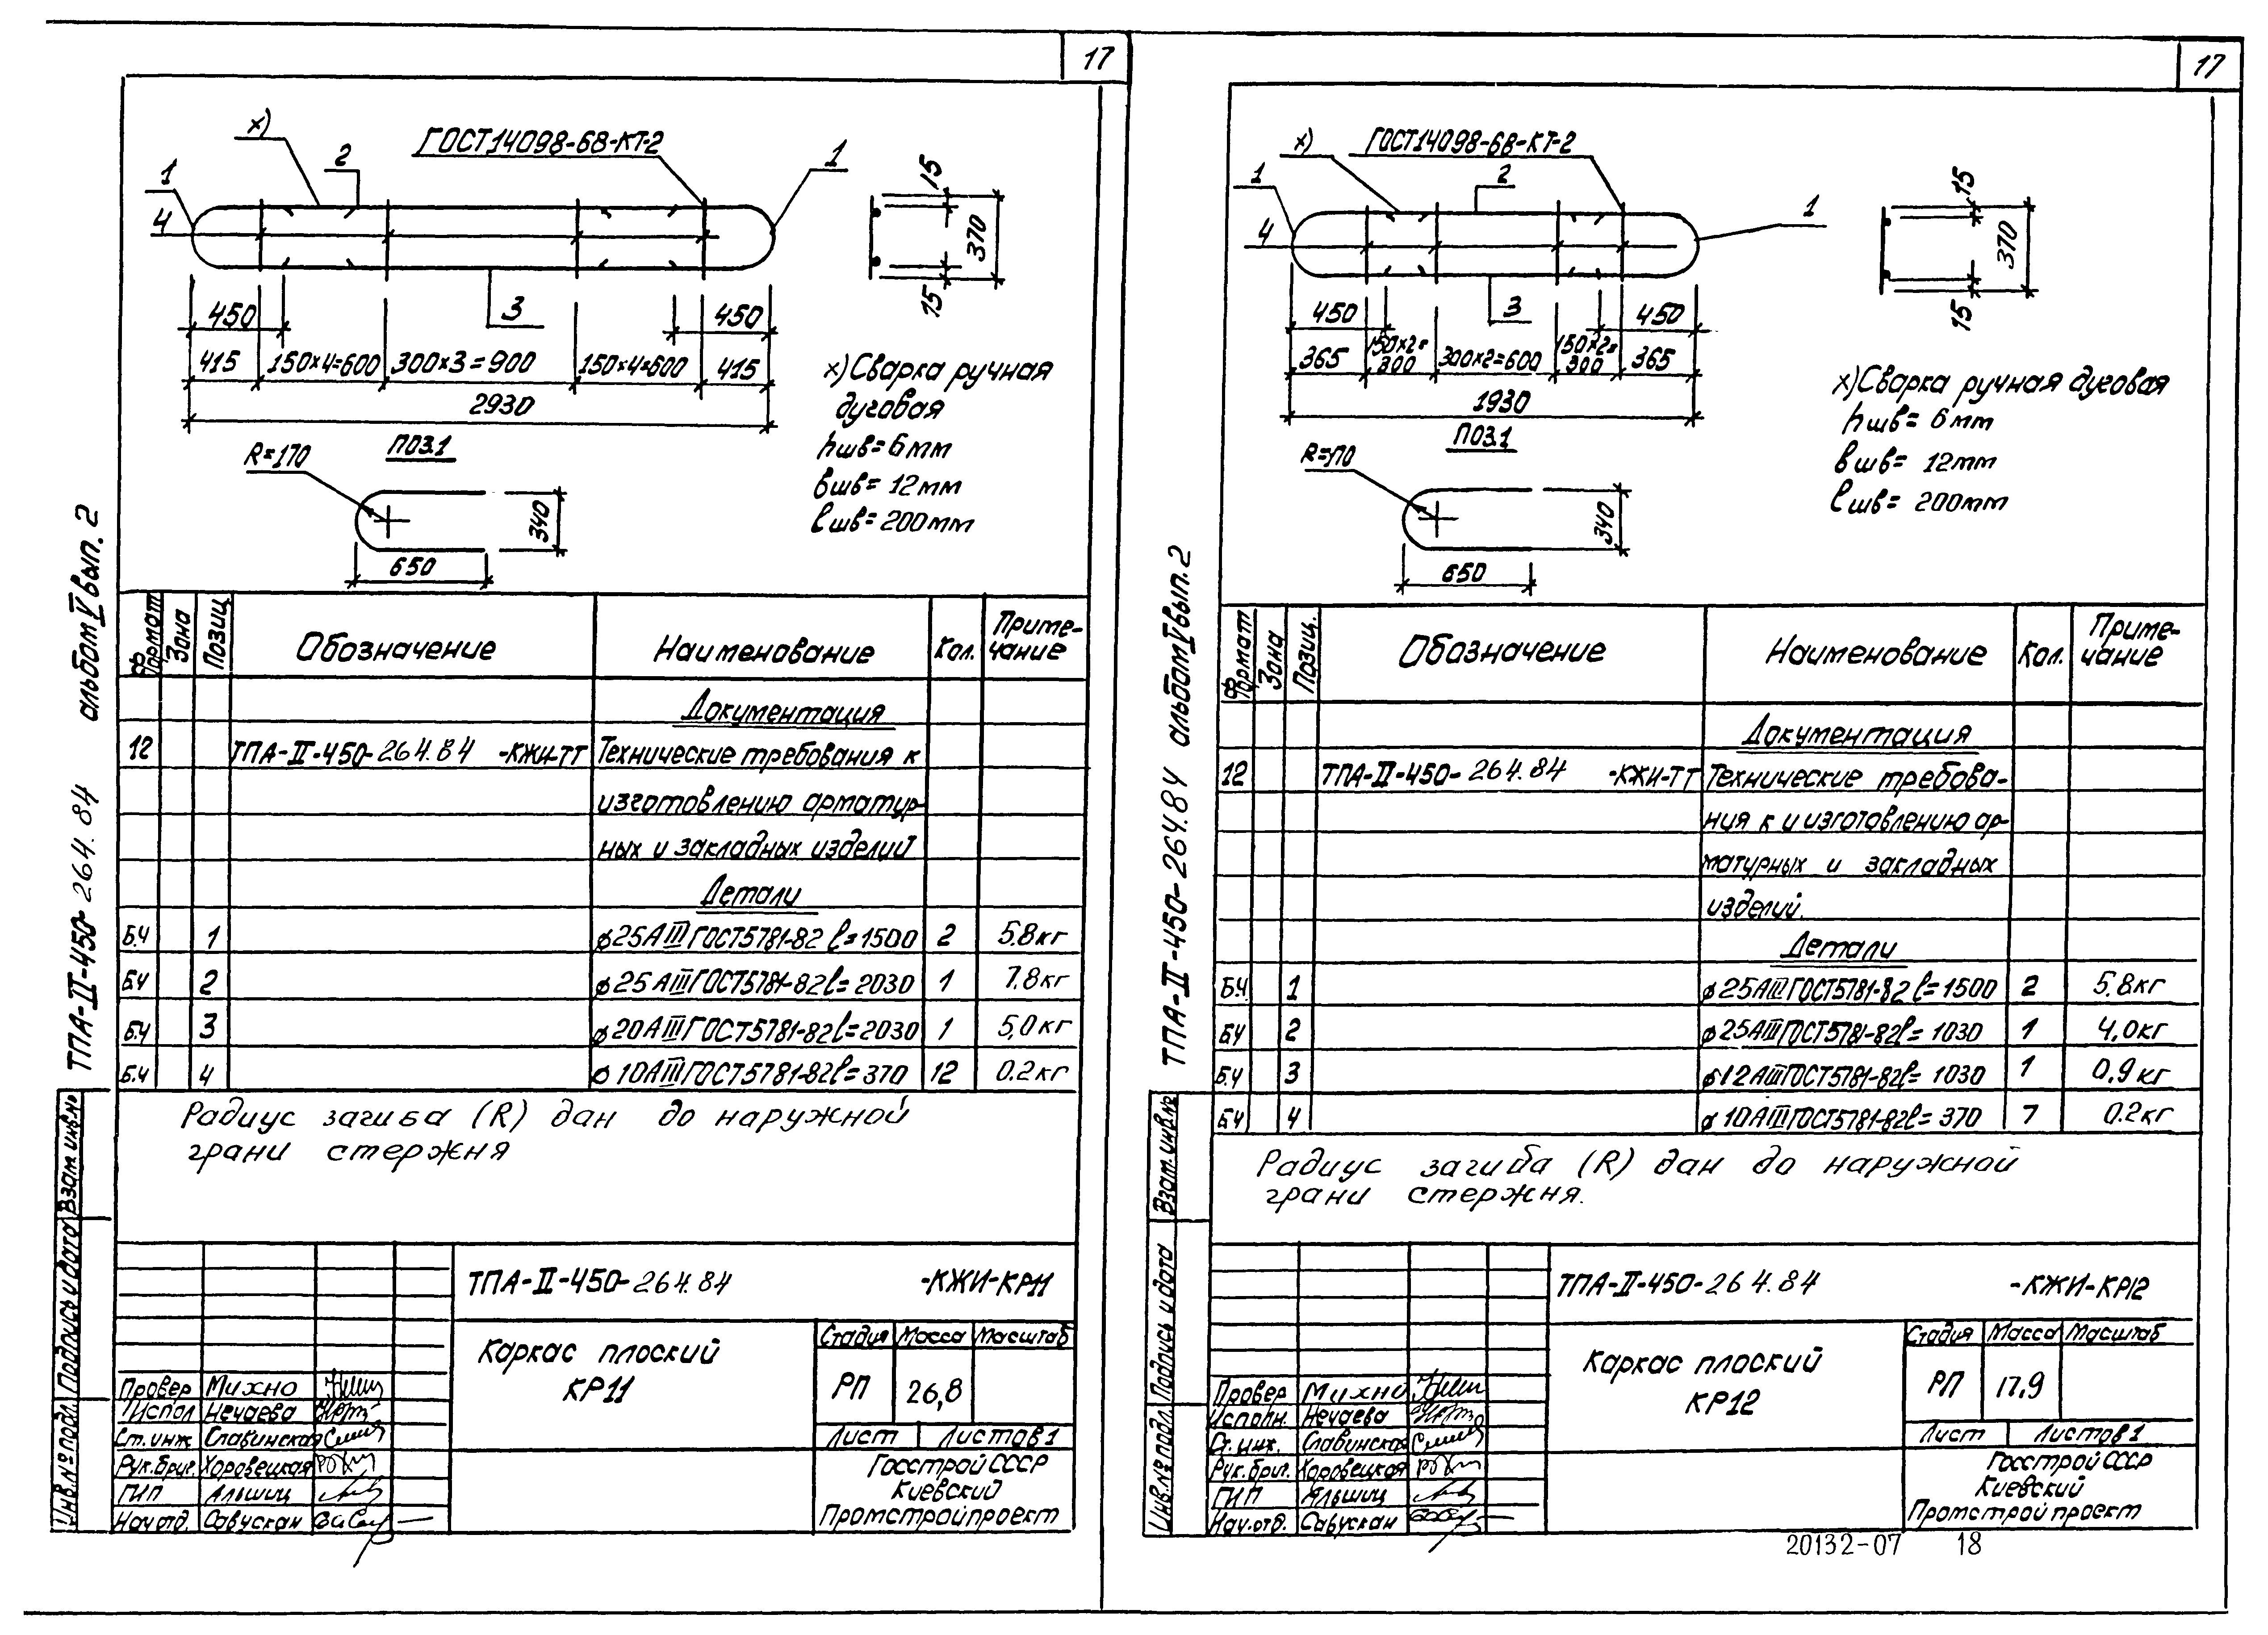 17
х)
2
ГОСТ14098-68-КТ-2
1
1
4
15
370
15
3
450
450
415
150х4=600
300х3=900
150х4=600
415
2930
х) Сварка ручная
дуговая
hшв=6мм
вшв=12мм
ℓшв=200мм
ПОЗ.1
R=170
340
650
альбом V вып. 2
ТПА-II-450-264.84
Формат
Зона
Позиц
Обозначение
Наименование
Кол.
Приме-
чание
Документация
12 ТПА-II-450-264.84 -КЖИ-ТТ Технические требования к
изготовлению арматур-
ных и закладных изделий
Детали
Б.Ч 1 ⌀25АIII ГОСТ5781-82 ℓ=1500 2 5.8кг
Б.Ч 2 ⌀25АIII ГОСТ5781-82 ℓ=2030 1 7.8кг
Б.Ч 3 ⌀20АIII ГОСТ5781-82 ℓ=2030 1 5,0кг
Б.Ч 4 ⌀10АIII ГОСТ5781-82 ℓ=370 12 0.2кг
Радиус загиба (R) дан до наружной
грани стержня
Взам.инв.№
Подпись и дата
Инв.№ подл.
ТПА-II-450-264.84 -КЖИ-КР11
Каркас плоский
КР11
Стадия Масса Масштаб
РП 26,8
Лист Листов 1
Госстрой СССР
Киевский
Промстройпроект
Провер Михно
Испол Нечаева
Ст.инж Славинская
Рук.бриг. Хоровецкая
ГИП Альшиц
Нач.отд. Савускан
17
х)
ГОСТ14098-68-КТ-2
1
2
1
4
15
370
15
3
450
450
365
150х2=
300
300х2=600
150х2=
300
365
1930
х) Сварка ручная дуговая
hшв= 6мм
вшв= 12мм
ℓшв= 200мм
ПОЗ.1
R=170
340
650
альбом V вып. 2
ТПА-II-450-264.84
Формат
Зона
Позиц.
Обозначение
Наименование
Кол.
Приме-
чание
Документация
12 ТПА-II-450-264.84 -КЖИ-ТТ Технические требова-
ния к и изготовлению ар-
матурных и закладных
изделий.
Детали
Б.Ч. 1 ⌀25АIII ГОСТ5781-82 ℓ=1500 2 5.8кг
Б.Ч 2 ⌀25АIII ГОСТ5781-82 ℓ=1030 1 4,0кг
Б.Ч 3 ⌀12АIII ГОСТ5781-82 ℓ=1030 1 0,9кг
Б.Ч 4 ⌀10АIII ГОСТ5781-82 ℓ=370 7 0.2кг
Радиус загиба (R) дан до наружной
грани стержня.
Взам.инв.№
Подпись и дата
Инв.№ подл.
ТПА-II-450-264.84 -КЖИ-КР12
Каркас плоский
КР12
Стадия Масса Масштаб
РП 17,9
Лист Листов 1
Госстрой СССР
Киевский
Промстройпроект
Провер Михно
Исполн. Нечаева
Ст.инж. Славинская
Рук.бриг. Хоровецкая
ГИП Альшиц
Нач.отд. Савускан
20132-07 18